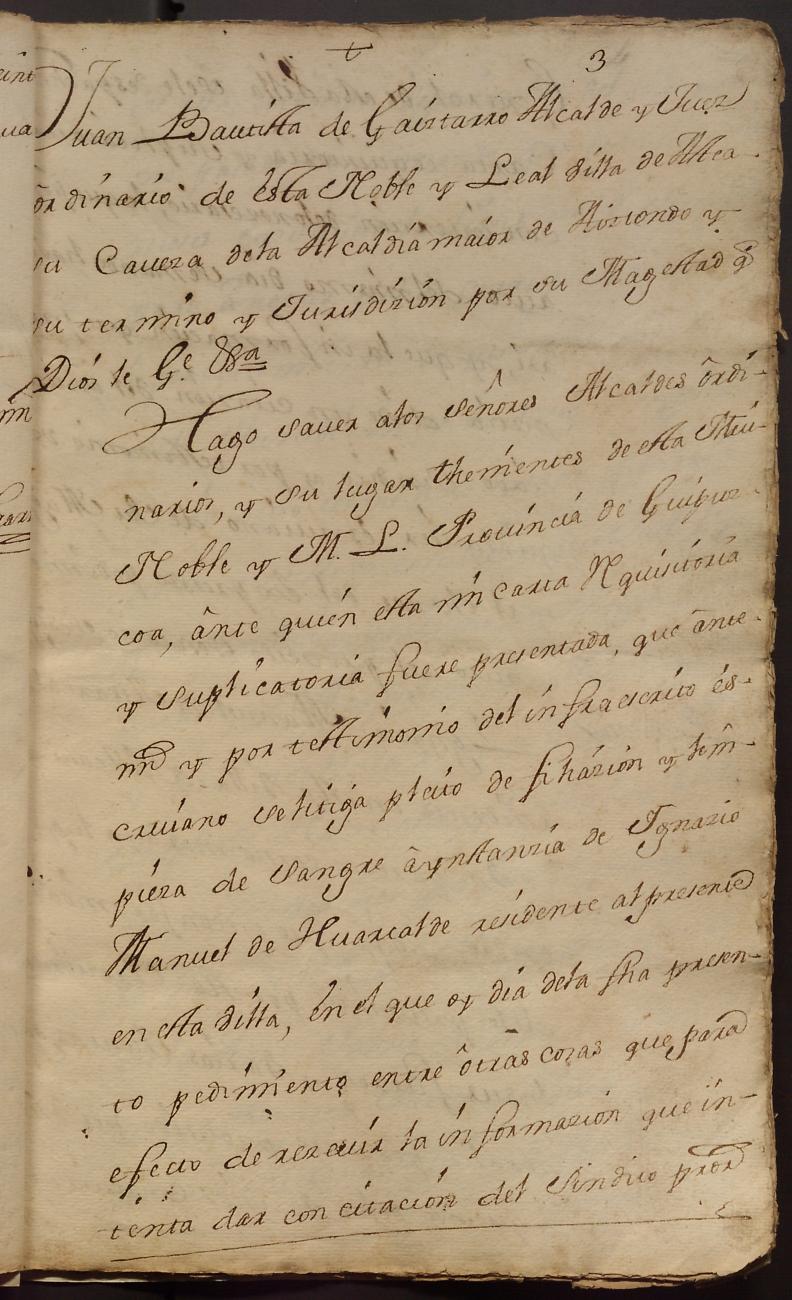 3
Juan Bautista de Gaiztarro Alcalde y Juez
ordinario de esta Noble y Leal Villa de Alca
su Caveza dela Alcaldia maior de Aiztondo y
su termino y Jurisdizion por su Magestad q̃
Dios le G.e &a
Hago saver alos señores Alcaldes ordi-
narios, y su lugar thenientes de esta Mui
Noble y M. L. Provincia de Guipuz-
coa, ante quien esta mi carta Rquisitoria
y suplicatoria fuere presentada, que ante
mi y por testimonio del infraescrito es-
crivano se litiga pleito de filiazion y lim-
pieza de sangre a ynstanzia de Ignazio
Manuel de Huarcalde residente al presente
en esta Villa, en el que oy dia dela fha presen-
to pedimiento entre otras cozas que para
efecto de rezevir la informazion que in-
tenta dar con citacion del Sindico pror